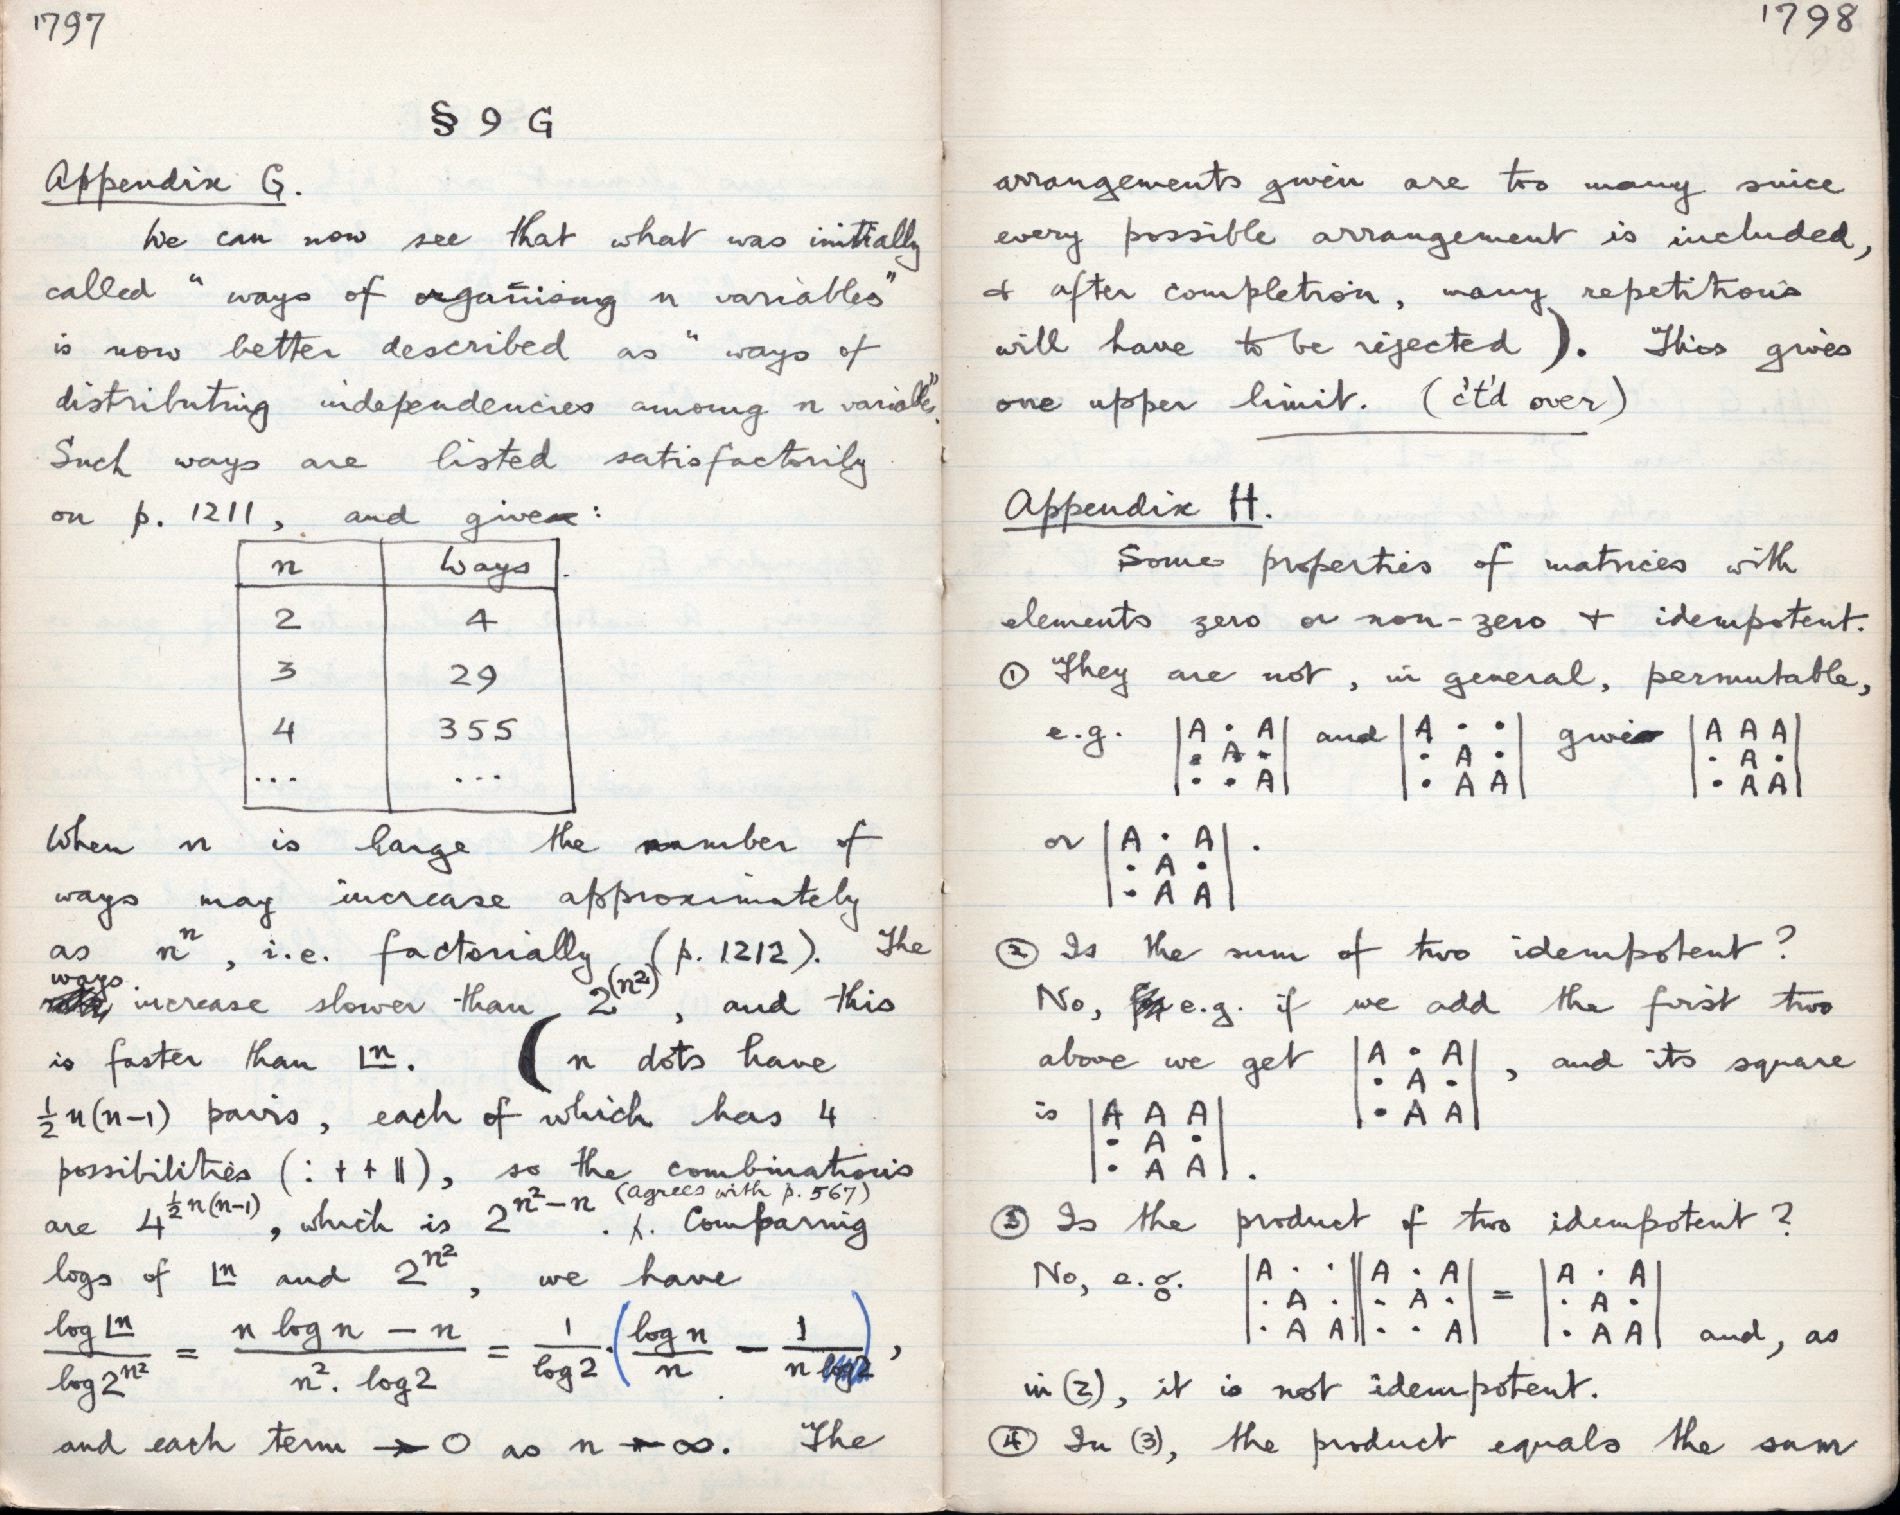 1797
§ 9 G
Appendix G.
We can now see that what was initially
called "ways of organising n variables"
is now better described as "ways of
distributing independencies among n variables".
Such ways are listed satisfactorily
on p. 1211, and give:
n Ways
2 4
3 29
4 355
... ...
When n is large the number of
ways may increase approximately
as nⁿ, i.e. factorially (p. 1212). The
ways increase slower than 2^(n²), and this
is faster than |n. (n dots have
½n(n-1) pairs, each of which has 4
possibilities (: + + ||), so the combinations
(agrees with p. 567)
are 4^½n(n-1), which is 2^n²-n. Comparing
logs of |n and 2^n², we have
log|n / log2^n² = n log n - n / n². log2 = 1/log2 · (log n / n - 1/n),
and each term → 0 as n → ∞. The
1798
arrangements given are too many since
every possible arrangement is included,
& after completion, many repetitions
will have to be rejected). This gives
one upper limit. (c't'd over)
Appendix H.
Some properties of matrices with
elements zero or non-zero & idempotent.
① They are not, in general, permutable,
e.g. |A · A| and |A · ·| give |A A A|
|· A ·| |· A ·| |· A ·|
|· · A| |· A A| |· A A|
or |A · A|.
|· A ·|
|· A A|
② Is the sum of two idempotent?
No, e.g. if we add the first two
above we get |A · A|, and its square
|· A ·|
|· A A|
is |A A A|
|· A ·|
|· A A|.
③ Is the product of two idempotent?
No, e.g. |A · ·||A · A| = |A · A|
|· A ·||· A ·| |· A ·|
|· A A||· · A| |· A A| and, as
in (2), it is not idempotent.
④ In (3), the product equals the sum